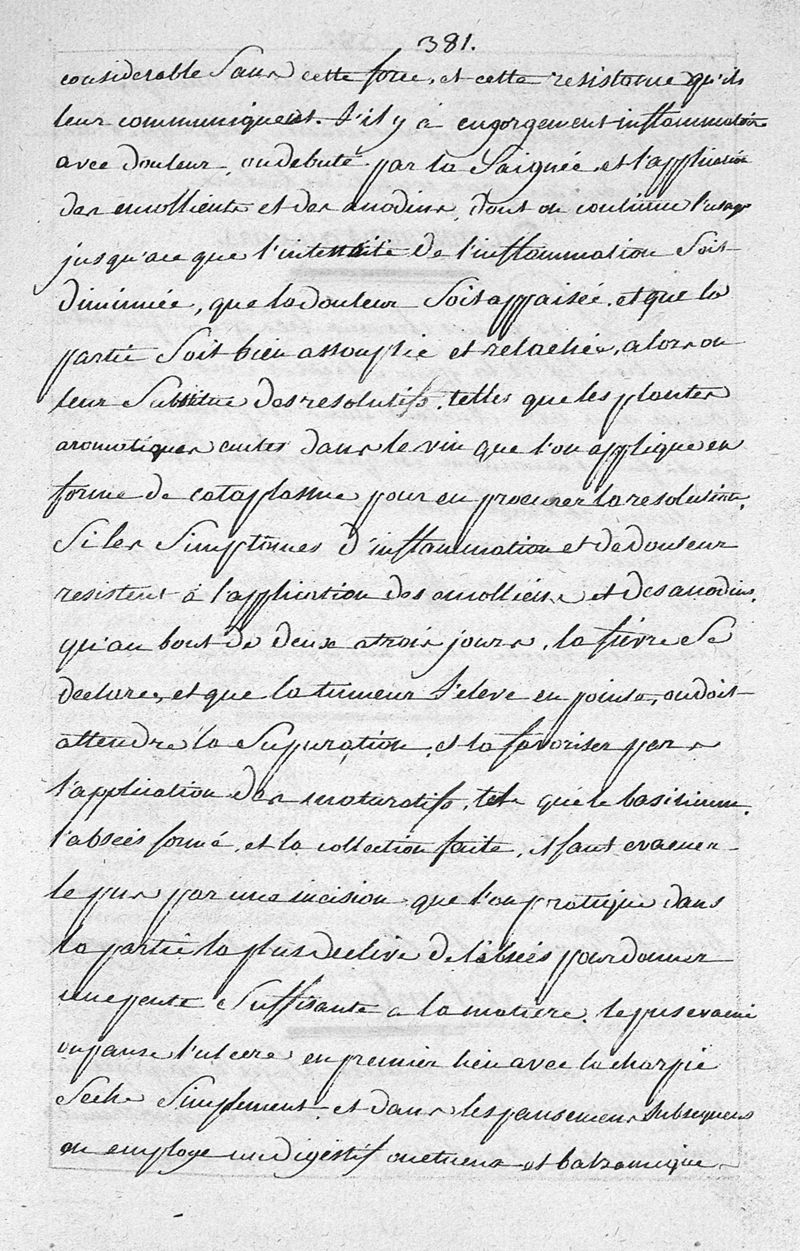 381.
considerable Sans cette force, et cette resistance qu'ils
leur communiquent. S'il y à engorgement inflammatoire
avec douleur, on debute par la Saignée, et l'application
des emollients et des anodins, dont on continue l'usage
jusqu'ace que l'intensité de l'inflammation Soit
diminuée, que la douleur Soit appaisée, et que la
partie Soit bien assouplie et relachée, alors on
leur Substitue des resolutifs, telles que les plantes
aromatiques cuites dans le vin que l'on applique en
forme de cataplasme pour en procurer la resolution.
Si les Simptomes d'inflammation et de douleur
resistent à l'application des emolliens et des anodins,
qu'au bout de deux a trois jours, la fievre Se
declare, et que la tumeur S'eleve en pointe, on doit
attendre la Supuration, et la favoriser par
l'application des maturatifs, tels que le basilicum.
l'abscès formé, et la collection faite, il faut evacuer
le pus par une incision que l'on pratique dans
la partie la plus declive de l'abscès pour donner
une pente Suffisante a la matiere. le pus evacué
on panse l'ulcere en premier lieu avec la charpie
Seche Simplement, et dans les pansemens Subsequens
on employe un digestif onctueux et balsamique